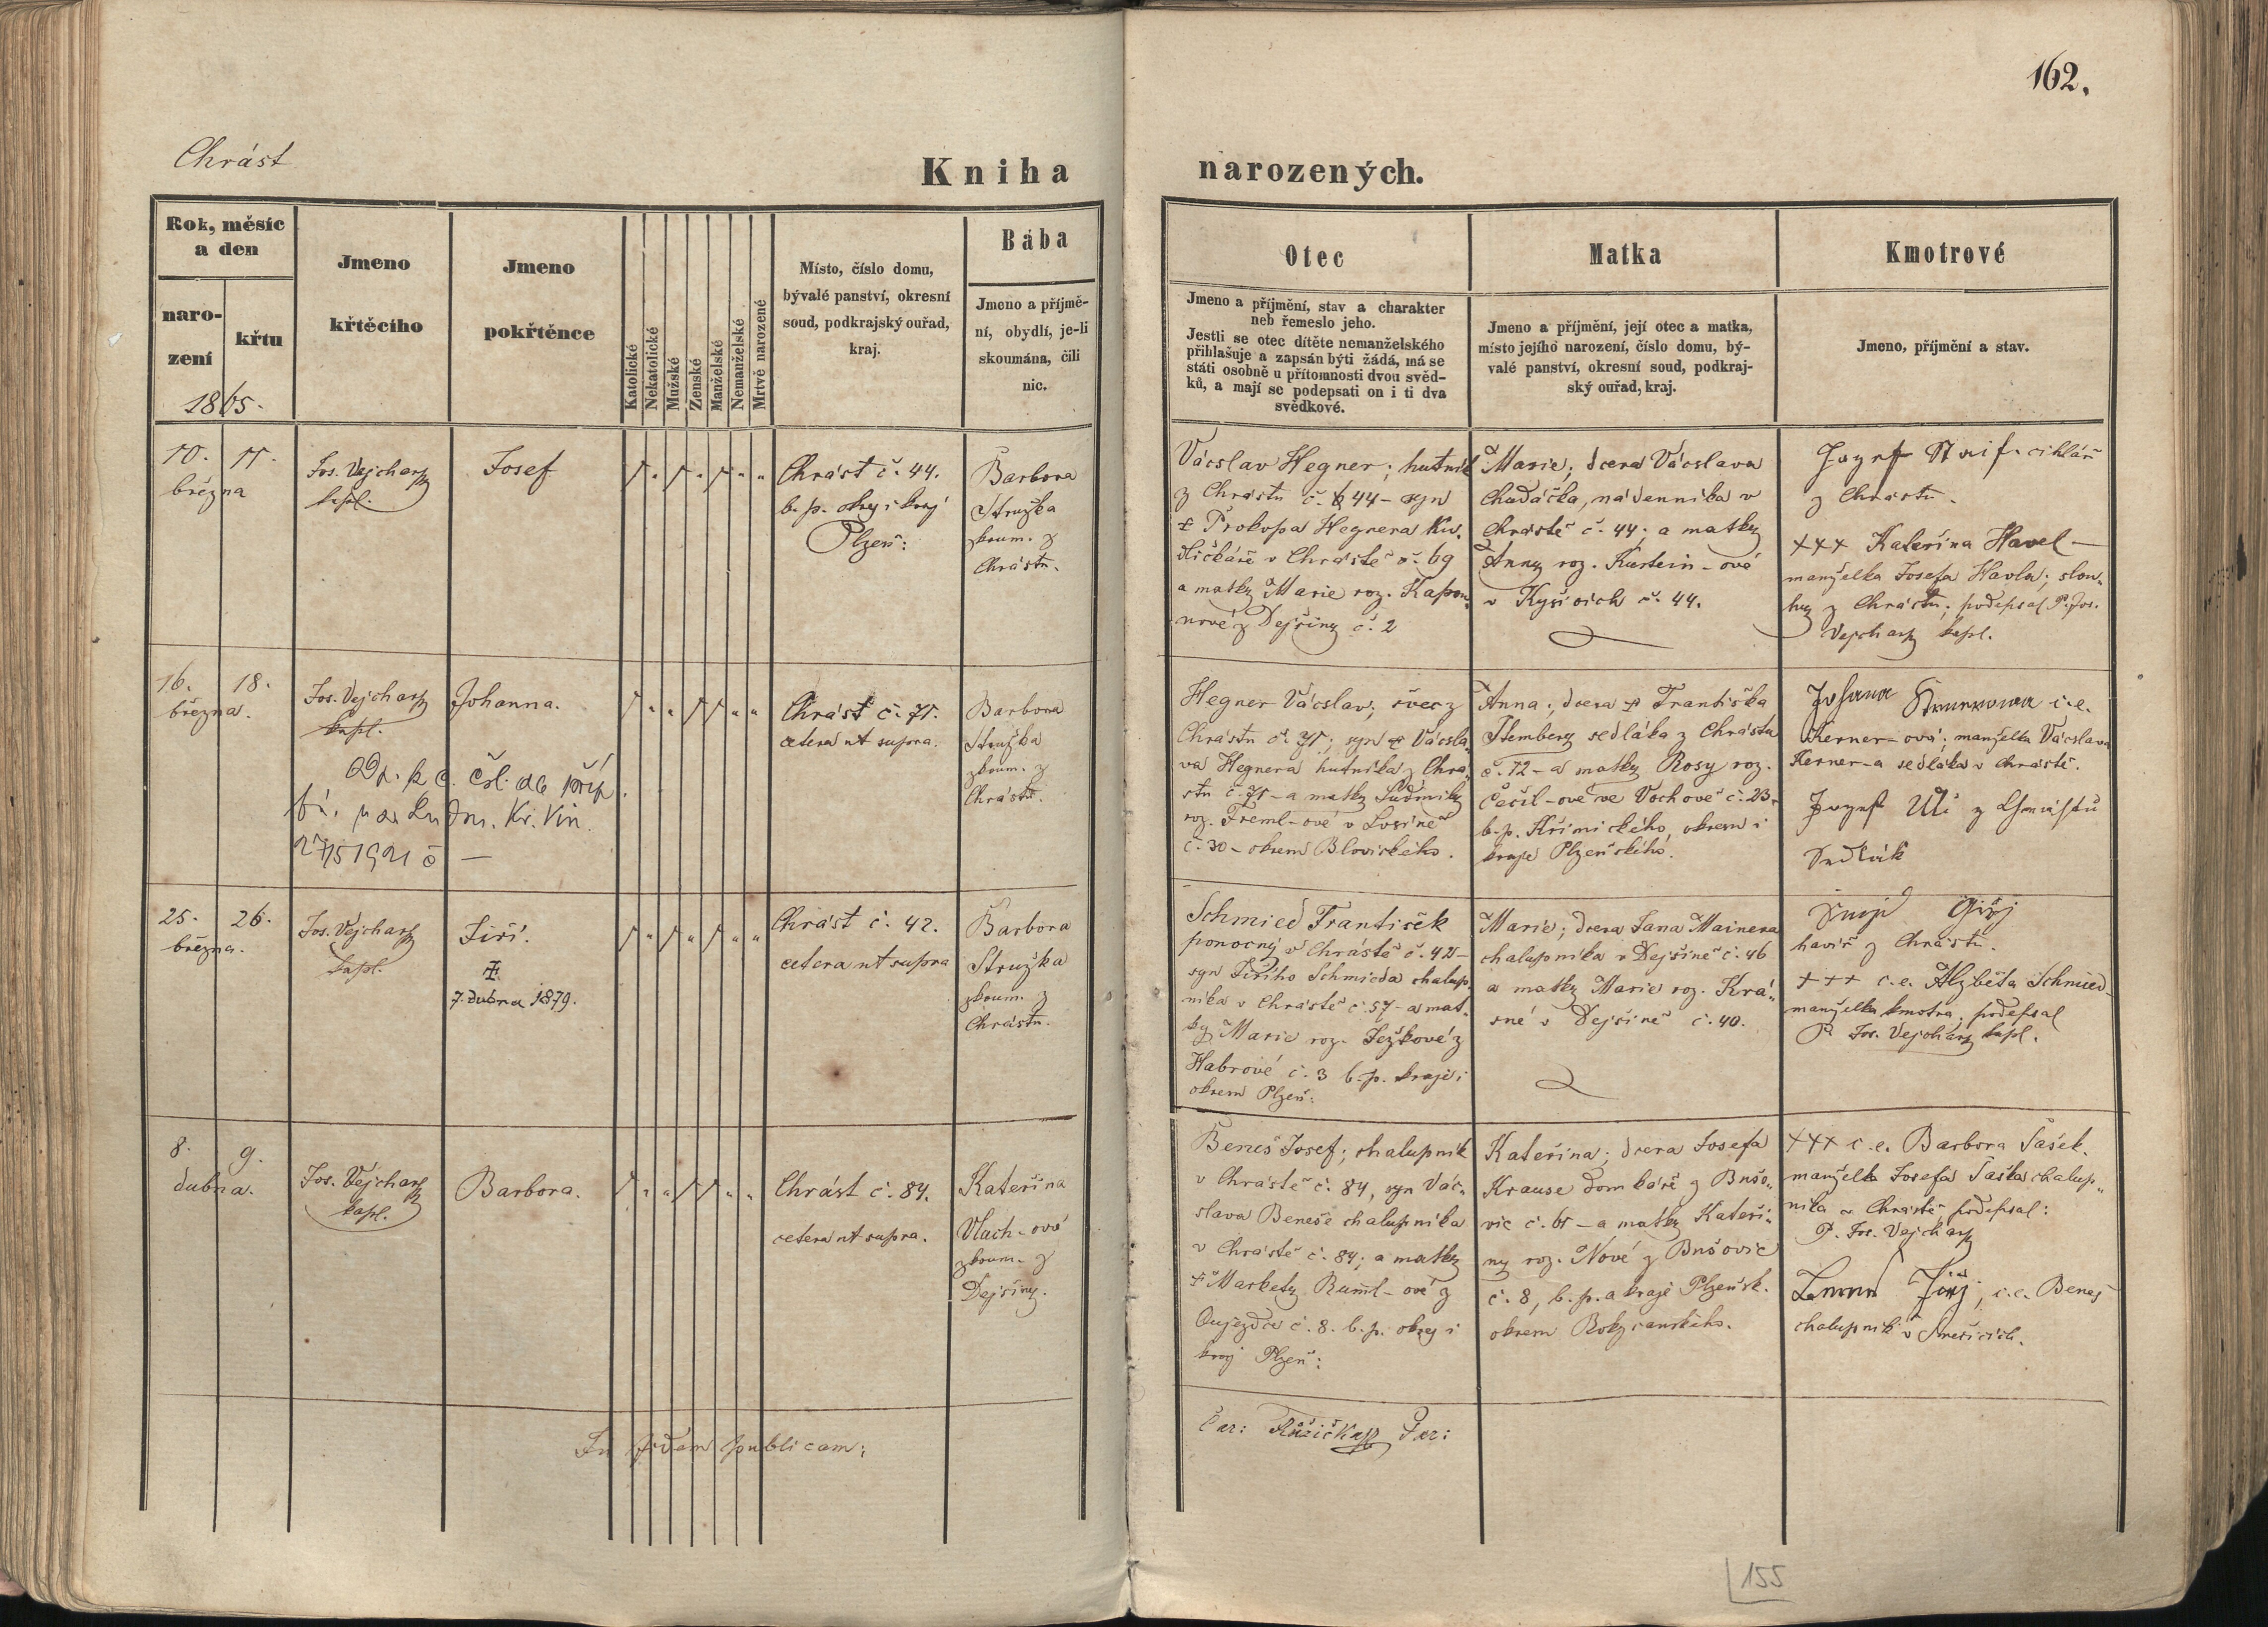 162.
Chrást
Kniha narozených.
Rok, měsíc
a den
naro-
zení
křtu
1865.
Jmeno
křtěcího
Jmeno
pokřtěnce
Katolické
Nekatolické
Mužské
Ženské
Manželské
Nemanželské
Mrtvě narozené
Místo, číslo domu,
bývalé panství, okresní
soud, podkrajský ouřad,
kraj.
Bába
Jmeno a příjmě-
ní, obydlí, je-li
skoumána, čili
nic.
Otec
Jmeno a příjmění, stav a charakter
neb řemeslo jeho.
Jestli se otec dítěte nemanželského
přihlašuje a zapsán býti žádá, má se
státi osobně u přítomnosti dvou svěd-
ků, a mají se podepsati on i ti dva
svědkové.
Matka
Jmeno a příjmění, její otec a matka,
místo jejího narození, číslo domu, bý-
valé panství, okresní soud, podkraj-
ský ouřad, kraj.
Kmotrové
Jmeno, příjmění a stav.
10. 11.
března
Jos. Vejchar
kapl.
Josef
Chrást č. 44.
b. p. okrej i kraj
Plzeň:
Barbora
Stružka
zkoum. z
Chrástu.
Vácslav Hegner; hutník
z Chrástu č. 44 - syn
Prokopa Hegnera
v Chrástě č. 69
a matky Marie roz.
z Dejšiny č. 2
Marie; dcera Vácslava
Chudáčka, nádenníka v
Chrástě č. 44; a matky
Anny roz.
v Kyšicích č. 44.
cihlář
z Chrástu.
+++ Kateřina Havel -
manželka Josefa Havla; slou-
hy z Chrástu; podepsal P. Jos.
Vejchar kapl.
16. 18.
března.
Jos. Vejchar
kapl.
Johanna.
čsl.
27/5 1921
Chrást č. 71.
cetera ut supra.
Barbora
Stružka
zkoum. z
Chrástu.
Hegner Vácslav; švec z
Chrástu č. 71; syn Vácsla-
va Hegnera hutníka z Chrá-
stu č. 71 - a matky Ludmily
roz. Treml-ové v Losině
č. 30 - okresu Blovického.
Anna; dcera Františka
Stemberg sedláka z Chrástu
č. 72 - a matky Rosy roz.
Čečil-ové ve Vochově č. 23 -
b. p. Křimického, okresu i
kraje Plzeňského.
Johana i. e.
Kerner-ová; manželka Vácslava
Kerner-a sedláka v Chrástě.
Jozef Uli z
Sedlák
25. 26.
března.
Jos. Vejchar
kapl.
Jiří.
7. dubna 1879.
Chrást č. 42.
cetera ut supra
Barbora
Stružka
zkoum. z
Chrástu.
Schmied František
ponocný v Chrástě č. 42 -
syn Jiřího Schmieda chalup-
níka v Chrástě č. 57 - a mat-
ky Marie roz. Ježkové z
Habrové č. 3 b. p. kraje i
okresu Plzeň:
Marie; dcera Jana Mainera
chalupníka v Dejšině č. 46
a matky Marie roz. Krá-
sné v Dejšině č. 40.
havíř z Chrástu.
+++ i. e. Alžběta Schmied-
manželka kmotra; podepsal
P. Jos. Vejchar kapl.
8. 9.
dubna.
Jos. Vejchar
kapl.
Barbora.
Chrást č. 84.
cetera ut supra.
Kateřina
Vlach-ová
zkoum. z
Dejšiny.
Beneš Josef; chalupník
v Chrástě č. 84, syn Vác-
slava Beneše chalupníka
v Chrástě č. 84; a matky
Markety Ruml-ové z
Oujezdce č. 8. b. p. okrej i
kraj Plzeň:
Kateřina; dcera Josefa
Krause domkáře z Bušo-
vic č. 65 - a matky Kateři-
ny roz. Nové z Bušovic
č. 8, b. p. a kraje Plzeňsk.
okresu Rokycanského.
+++ i. e. Barbora Šašek.
manželka Josefa Šaška chalup-
níka v Chrástě, podepsal:
P. Jos. Vejchar
Jiří, i. e. Beneš
chalupník v Smědčicích.
In fidem publicam:
Růžička
155